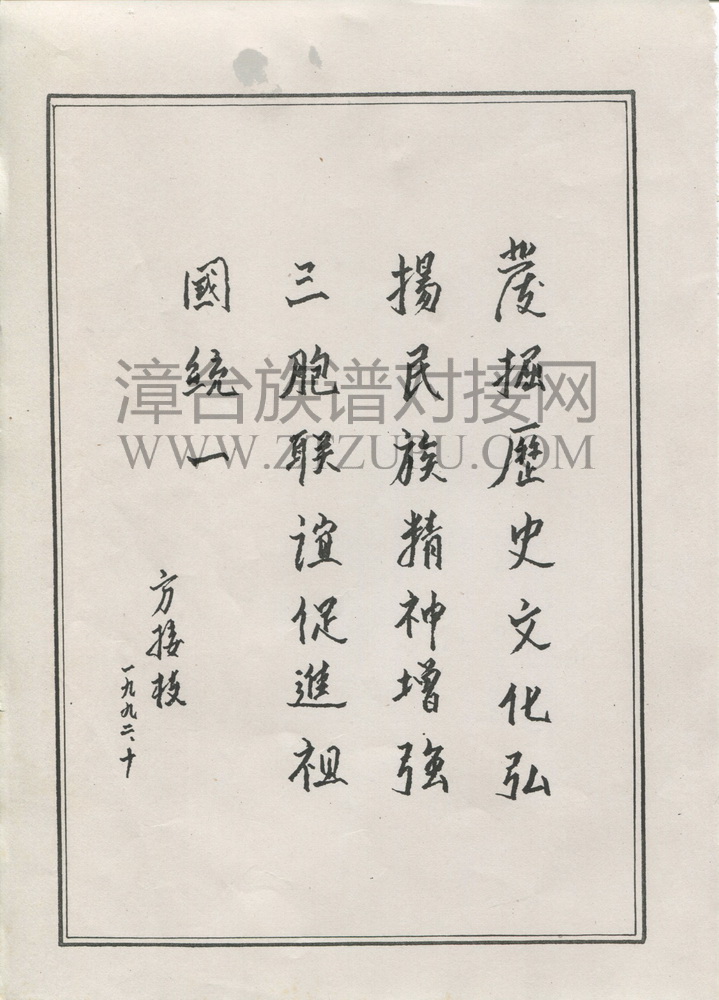 發掘歷史文化弘
揚民族精神增強
三胞联誼促進祖
國統一
方接枝
一九九二、十
漳台族谱对接网
WWW.ZTZUPU.COM